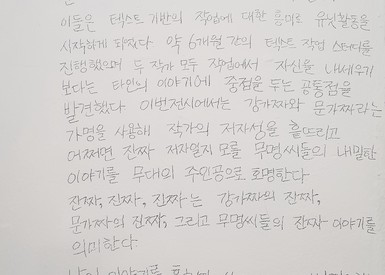 이들은 텍스트 기반의 작업에 대한 흥미로 유닛활동을
시작하게 되었다. 약 6개월 간의 텍스트 작업 스터디를
진행했으며 두 작가 모두 작업에서 자신을 내세우기
보다는 타인의 이야기에 중점을 두는 공통점을
발견했다. 이번전시에서는 강가짜와 문가짜라는
가명을 사용해 작가의 저자성을 흩뜨리고
어쩌면 진짜 저자일지 모를 무명씨들의 내밀한
이야기를 무대의 주인공으로 호명한다.
잔짜, 진짜, 진짜-는 강가짜의 잔짜,
문가짜의 진짜, 그리고 무명씨들의 진짜-이야기를
의미한다.